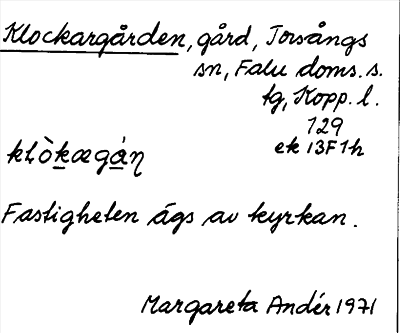 Klockargården, gård, Torsångs
sn, Falu doms.s.
tg, Kopp. l.
129
ek 13F1h
kłò̀kægáɳ
Fastigheten ägs av kyrkan.
Margareta Andér 1971